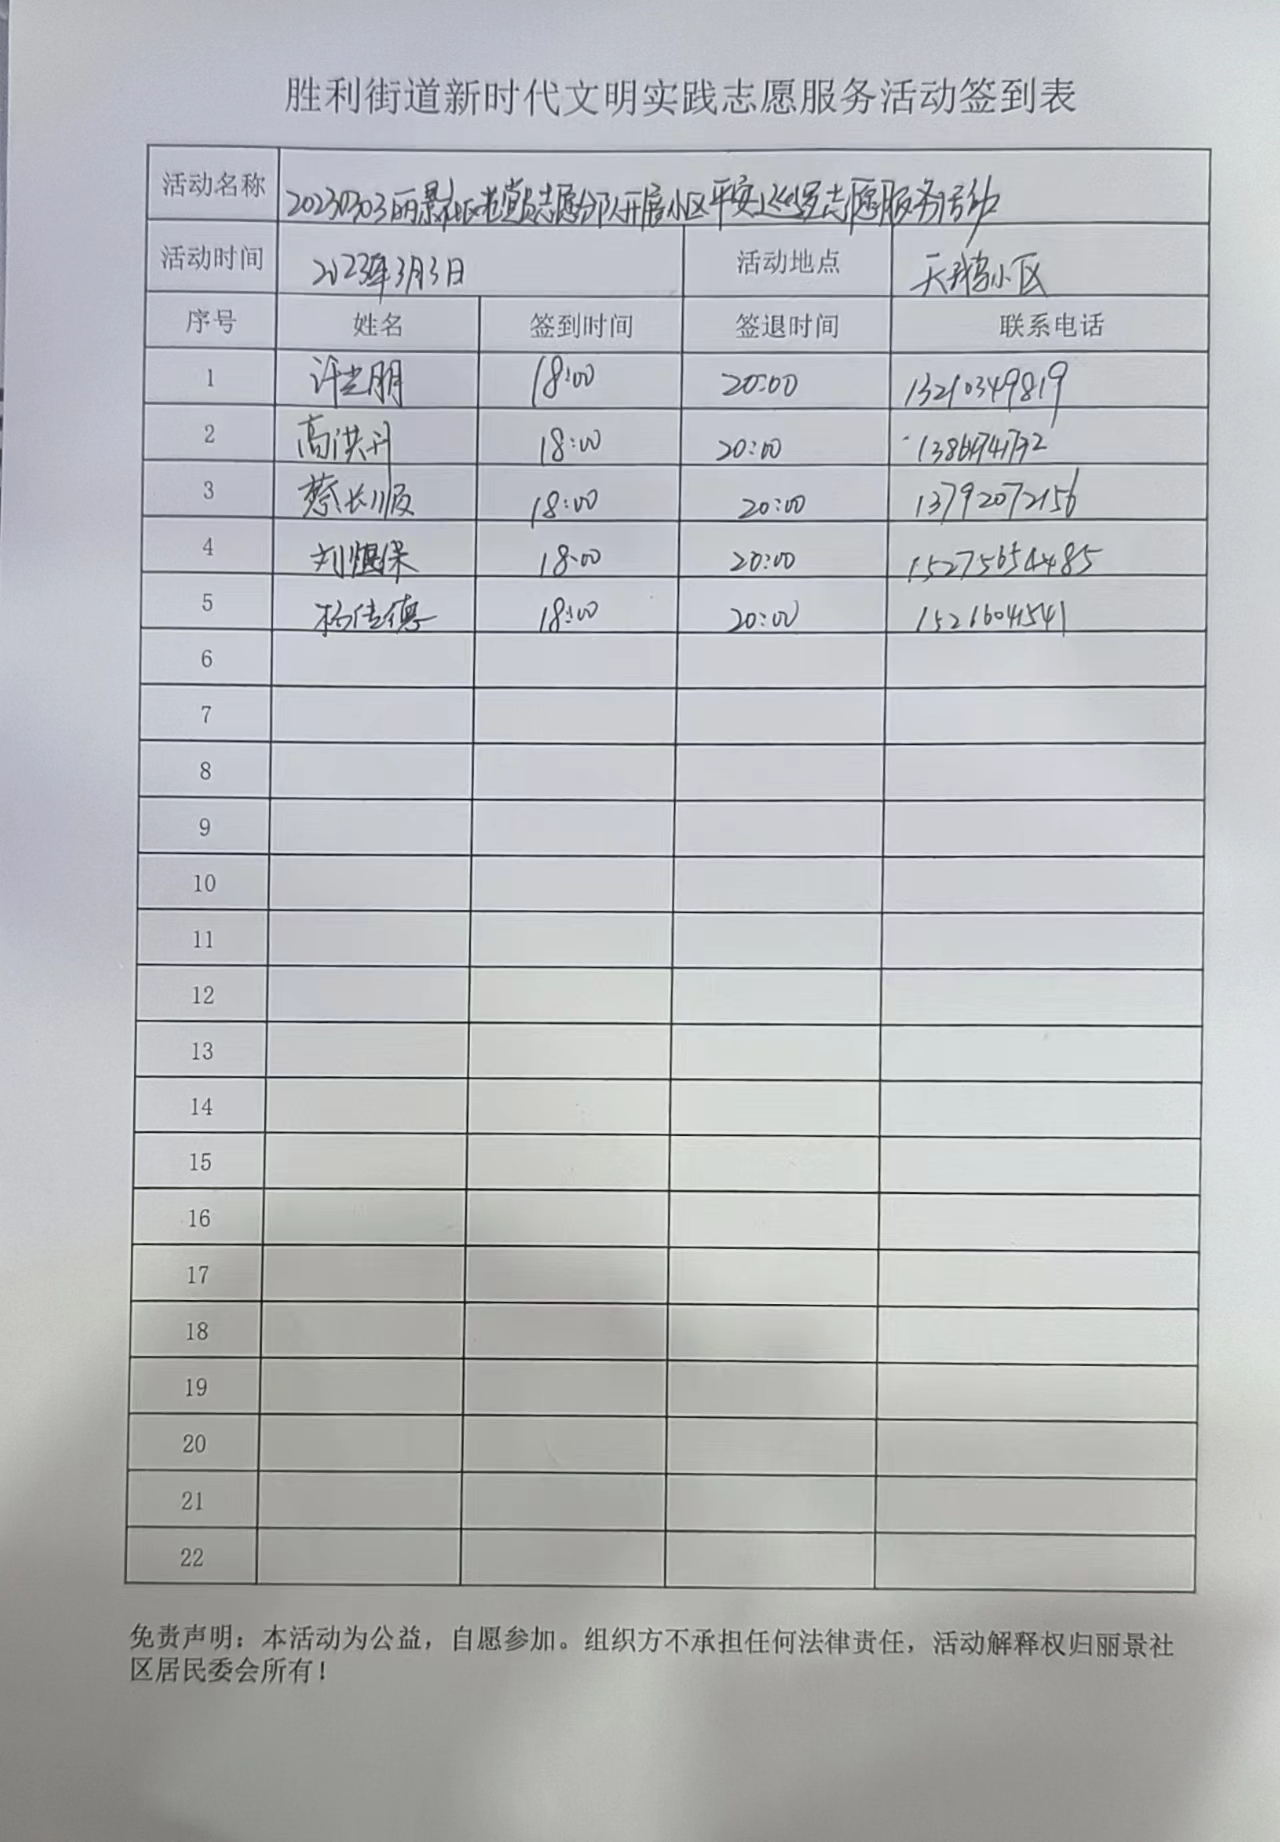 胜利街道新时代文明实践志愿服务活动签到表
活动名称 20230303丽景社区老党员志愿分队开展小区平安巡逻志愿服务活动
活动时间 2023年3月3日 活动地点 天鹅小区
序号 姓名 签到时间 签退时间 联系电话
1 许光朋 18:00 20:00 13210349819
2 高洪升 18:00 20:00
3 蔡长顺 18:00 20:00 13792072156
4 18:00 20:00 15275654485
5 杨佳德 18:00 20:00 15216041541
6
7
8
9
10
11
12
13
14
15
16
17
18
19
20
21
22
免责声明：本活动为公益，自愿参加。组织方不承担任何法律责任，活动解释权归丽景社
区居民委会所有！